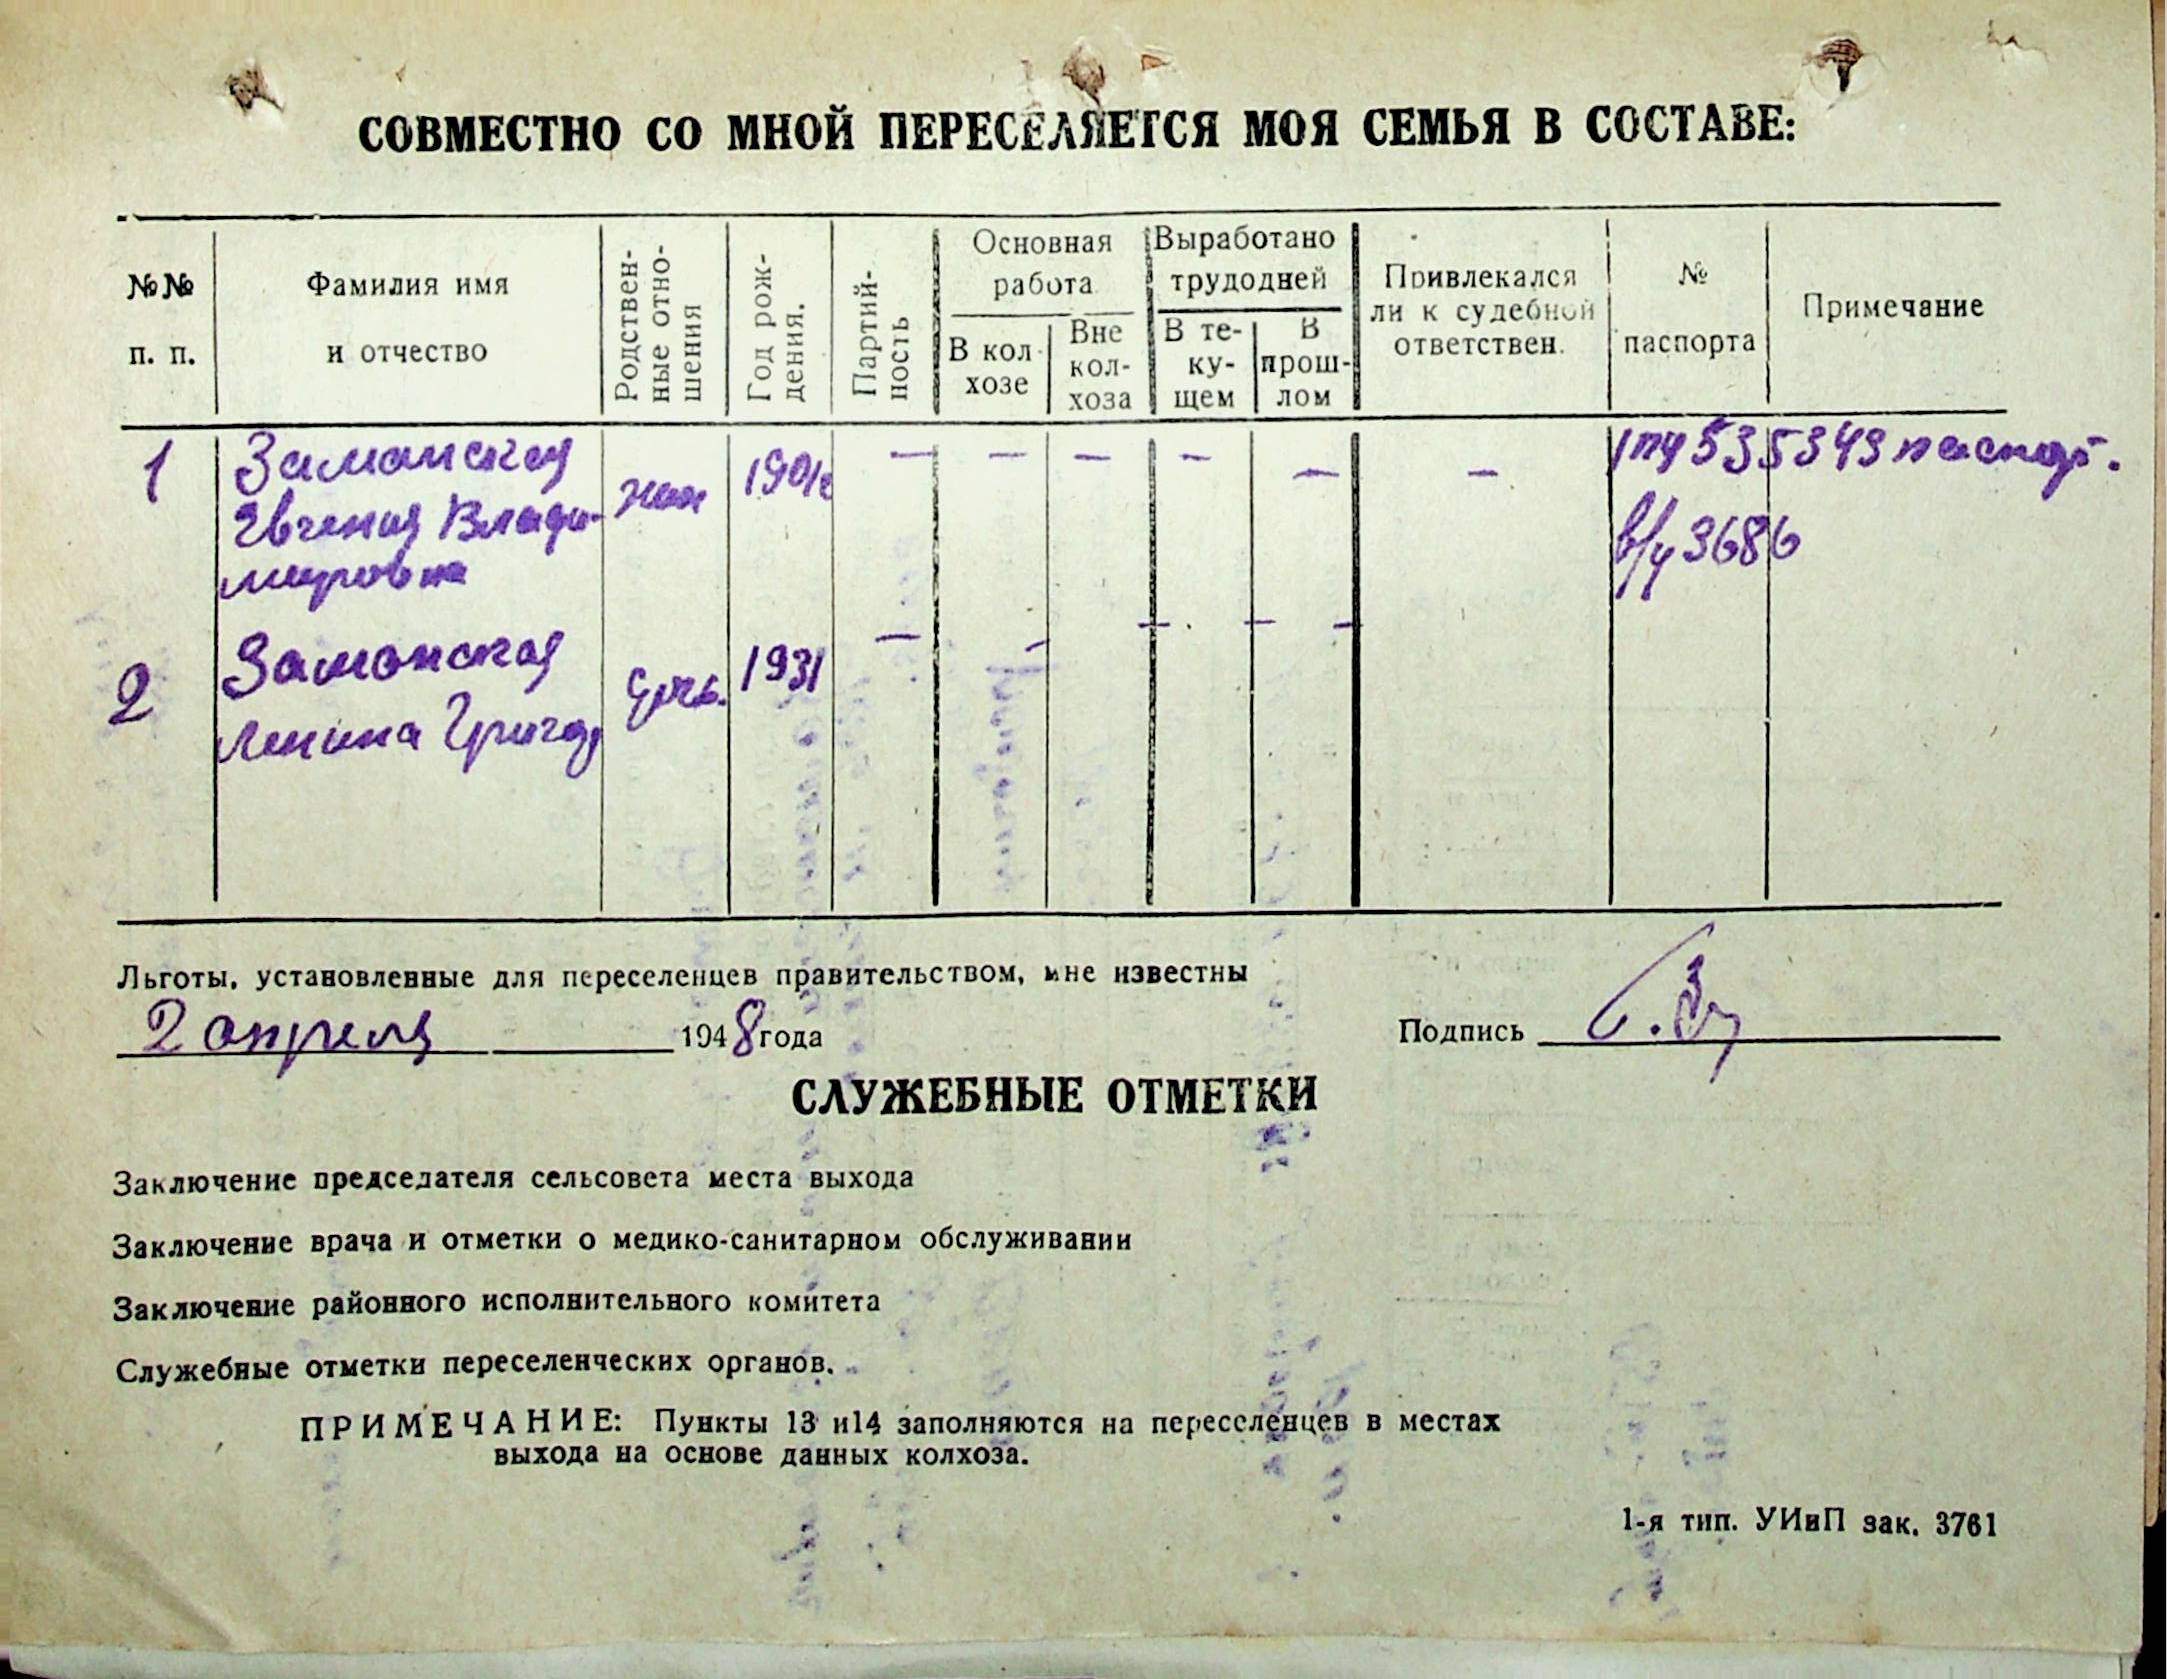 СОВМЕСТНО СО МНОЙ ПЕРЕСЕЛЯЕТСЯ МОЯ СЕМЬЯ В СОСТАВЕ:
№№ п. п.
Фамилия имя и отчество
Родствен-
ные отно-
шения
Год рож-
дения.
Партий-
ность
Основная работа
В кол-
хозе
Вне
кол-
хоза
Выработано трудодней
В те-
ку-
щем
В
прош-
лом
Привлекался
ли к судебной
ответствен.
№ паспорта
Примечание
1 Заманская жена 1901 — — — — — — 535349 паспорт.
Евгения Влади- 3686
мировна
2 Заманская дочь. 1931 — — — — —
Ленина Григор
Льготы, установленные для переселенцев правительством, мне известны
2 апреля 1948 года Подпись
СЛУЖЕБНЫЕ ОТМЕТКИ
Заключение председателя сельсовета места выхода
Заключение врача и отметки о медико-санитарном обслуживании
Заключение районного исполнительного комитета
Служебные отметки переселенческих органов.
ПРИМЕЧАНИЕ: Пункты 13 и14 заполняются на переселенцев в местах
выхода на основе данных колхоза.
1-я тип. УИиП зак. 3761